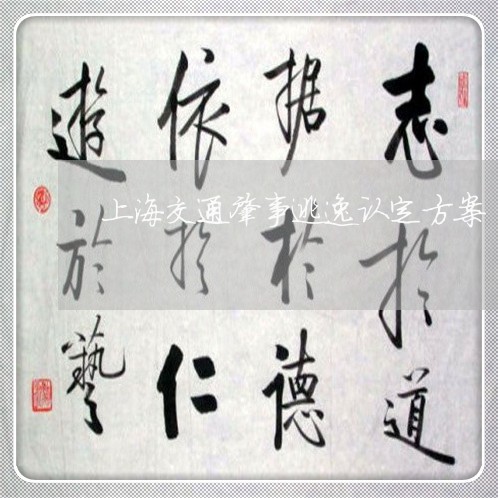 志於道
据於德
依於仁
遊於藝
上海交通肇事逃逸认定方案